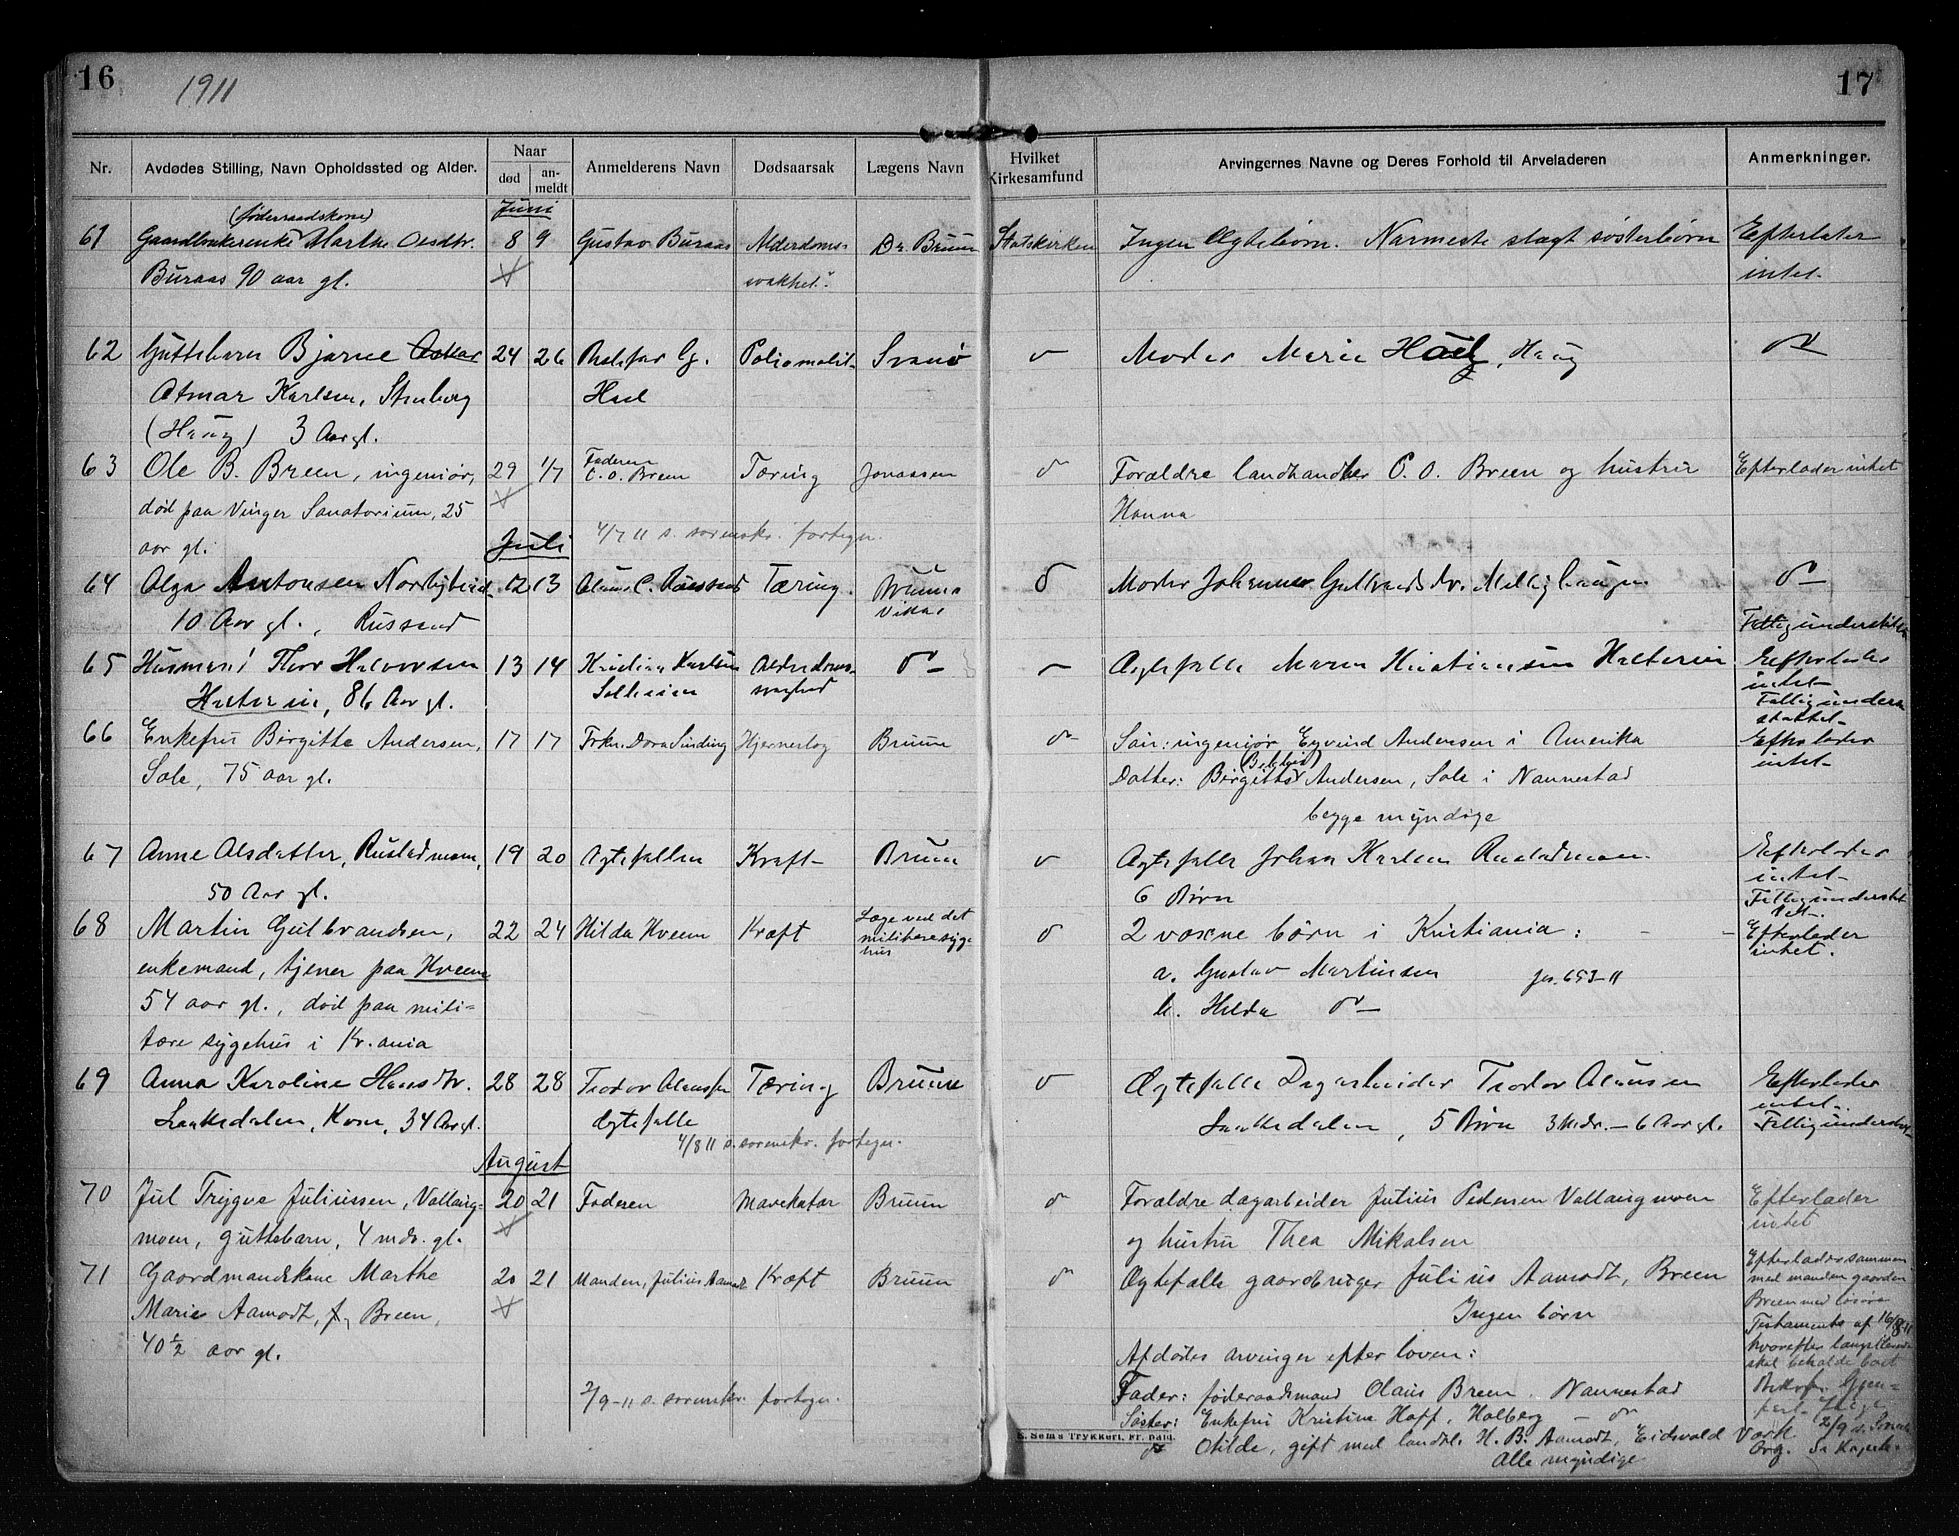 16
1911
17
Nr.
Avdødes Stilling, Navn Opholdssted og Alder.
Naar
død
an-
meldt
Anmelderens Navn
Dødsaarsak
Lægens Navn
Hvilket
Kirkesamfund
Arvingernes Navne og Deres Forhold til Arveladeren
Anmerkninger.
(føderaadskone)
Juni
61 Marthe Olsdtr. 8 9 Gustav Buraas Alderdoms- Dr. Bruun Statskirken Ingen Ægtebørn. Nærmeste slægt søsterbørn Efterlater
Buraas 90 aar gl. svakhet. intet.
62 Guttebarn Bjarne Oskar 24 26 G. Poliomelit. Svanø " Moder Marie , Haug "
Karlsen, Stenberg
(Haug) 3 Aar gl.
63 Ole B. Breen, ingeniør, 29 1/7 Faderen Tæring Jonassen " Forældre landhandler O. O. Breen og hustru Efterlader intet
O. O. Breen
død paa Vinger Sanatorium, 25 Hanna
aar gl. 4/7 11 s. sorenskr. fortegn.
Juli
64 Olga Antonsen 12 13 Tæring. Bruuns " Moder "
vikar
10 Aar gl., Russerud
Fattigunderstøt
65 Husmand Thor Halvorsen 13 14 Kristian Karlsen Alderdoms- " — " Ægtefælle Maren Kristiansen Efterlader
86 Aar gl. svaghed intet
Fattigunder-
støttet
66 Enkefru Birgitte Andersen, 17 17 Frkn. Dora Sinding Hjerneslag Bruun " Søn: ingeniør Eyvind Andersen i Amerika Efterlader
Sole, 75 aar gl. Datter: Birgitte Andersen, Sole i Nannestad intet
begge myndige
67 Anne Olsdatter, Rustadmoen, 19 20 Ægtefællen Kræft Bruun " Ægtefælle Johan Karlsen Rustadmoen. Efterlader
50 Aar gl. 6 Børn intet
Fattigunderstøt
tet.
68 Martin Gulbrandsen, 22 24 Hilda Kveem Kræft Læge ved det " 2 voxne børn i Kristiania: Efterlader
militæresyge
hus
enkemand, tjener paa Kveem a. Gustav Martinsen Jos. 653-11 intet.
54 aar gl., død paa mili- b. Hilda —"—
tære sygehus i Kr.ania
69 Anna Karoline Hansdtr. 28 28 Teodor Olaussen Tæring Bruun " Ægtefælle Dagarbeider Teodor Olaussen Efterlader
Laaksdalen, Kone, 34 Aar gl. Ægtefælle Laaksdalen, 5 Børn 3 Mdr. — 6 Aar gl. intet.
Fattigunderstøt
4/8 11 s. sorenskr. fortegn.
August
70 Jul Trygve Juliussen, Vallaug- 20 21 Faderen Mavekatar Bruun " Forældre dagarbeider Julius Pedersen Vallaugmoen Efterlader
moen, guttebarn, 4 mdr. gl. og hustru Thea Mikalsen intet
71 Gaardmandskone Marthe 20 21 Manden, Julius Aamodt Kræft Bruun " Ægtefælle gaardbruger Julius Aamodt, Breen Efterlader sammen
med manden gaarden
Marie Aamodt, f. Breen, Ingen børn Breen med løsøre
40 1/2 aar gl. Testamente af 16/8 11
Afdødes arvinger efter loven: hvorefter længstlevende
skal beholde boet
2/9-11 s. sorenskr. fortegn. Fader: føderaadsmand Olaus Breen. Nannestad
Søster: Enkefru Kristine Hoff, Holberg — "
S. Sems Trykkeri, Fr.hald.
" Otilde, gift med landhl. H. B. Aamodt, Eidsvold Værk
Alle myndige